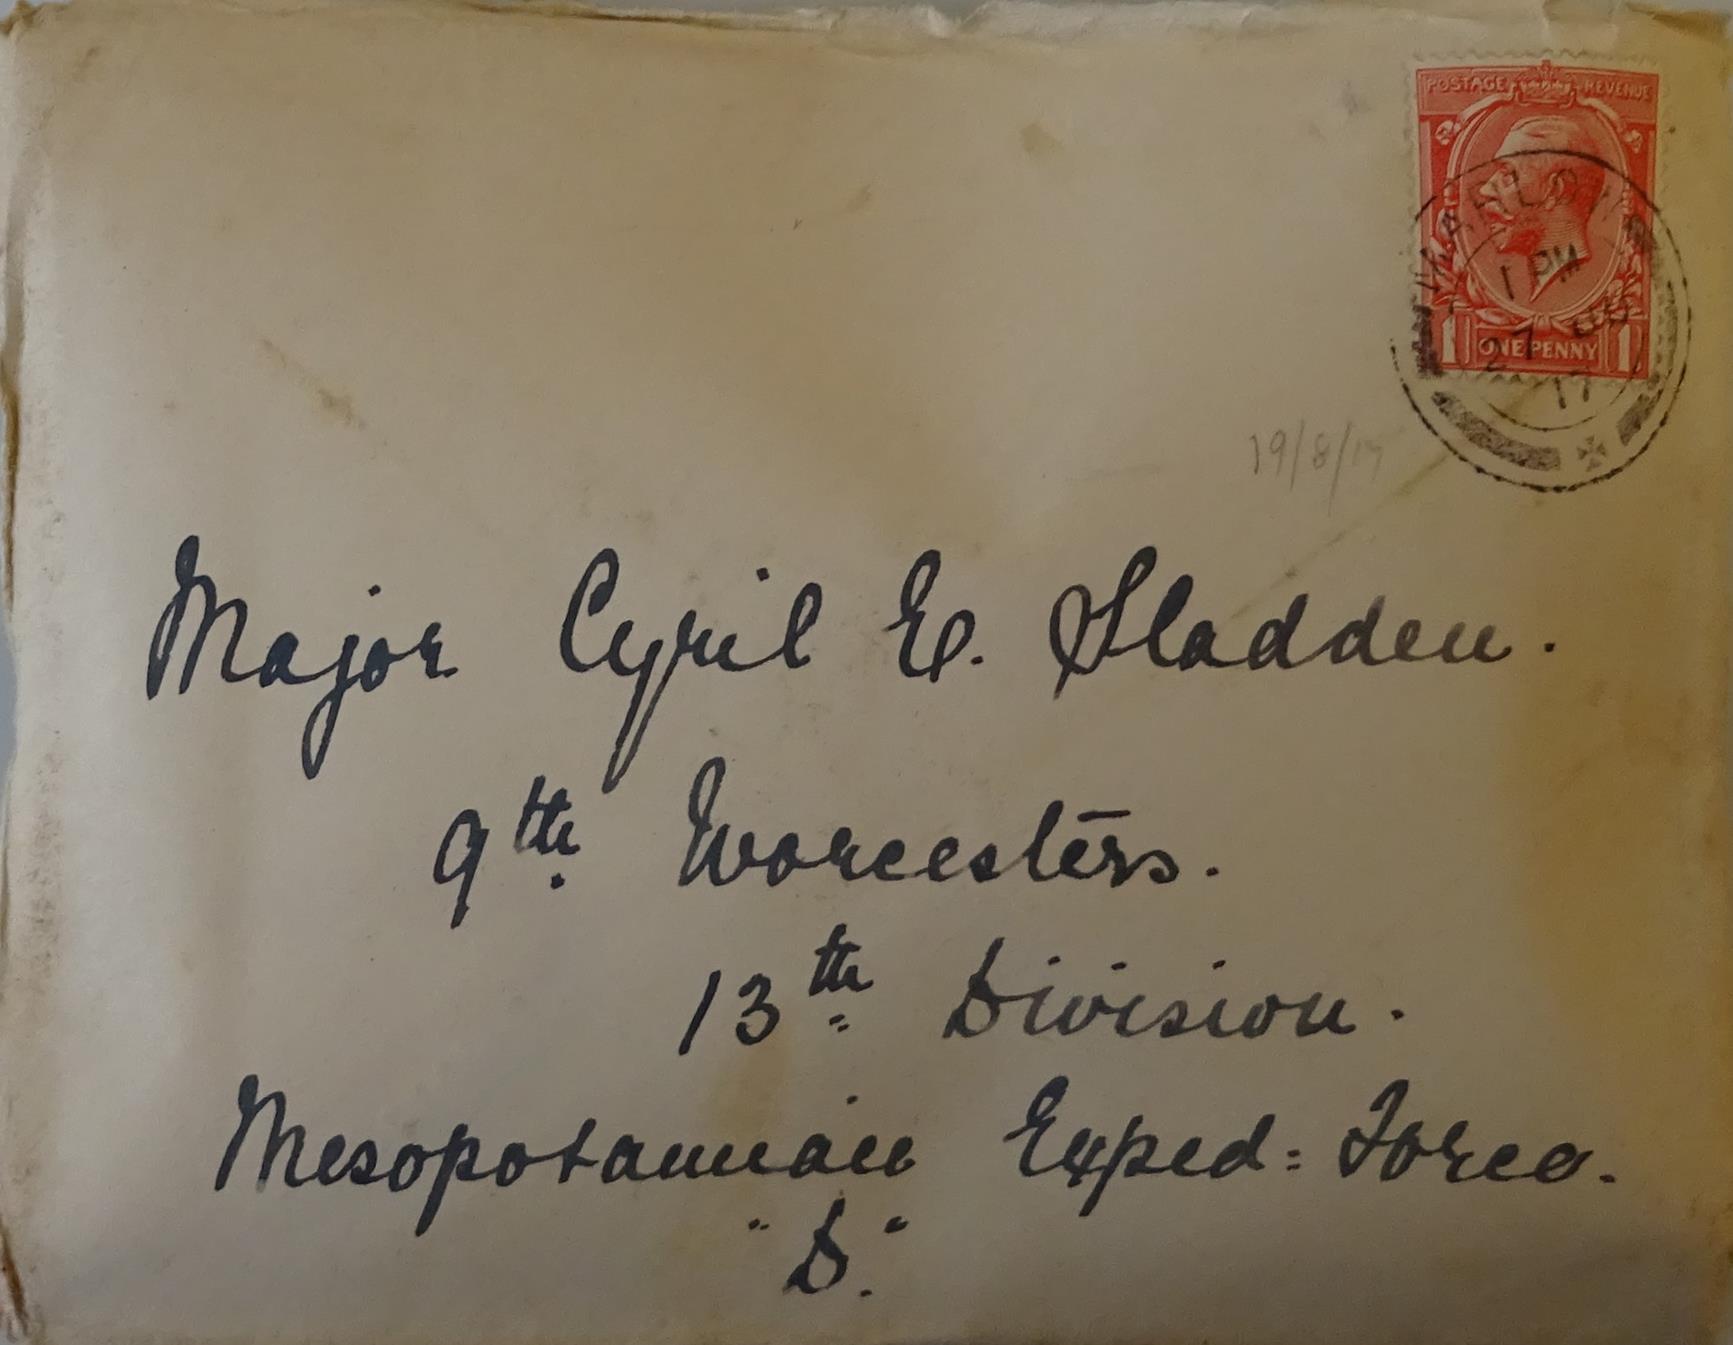 POSTAGE REVENUE
1 PM
27 AU
17
1 ONE PENNY 1
19/8/17
Major Cyril E. Sladden.
9th. Worcesters.
13th Division.
Mesopotamian Exped: Force.
"D".